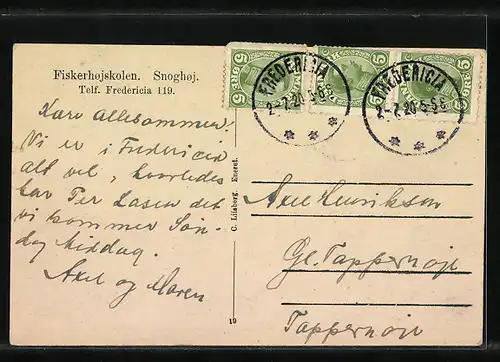 Fiskerhøjskolen. Snoghøj.
Telf. Fredericia 119.
Kære Allesammen!
Vi er i Fredericia
alt vel, hvorledes
har Per Lasen det
vi kommer Søn-
dag Middag.
Axel og Maren
C. Lilsberg. Eneret.
19
5 ØRE 5
5 5
5 5
FREDERICIA
2-7.20 5-5 E
FREDERICIA
2-7.20 5-5 E
Axel Henrikson
Gl. Tappernøje
Tappernøje